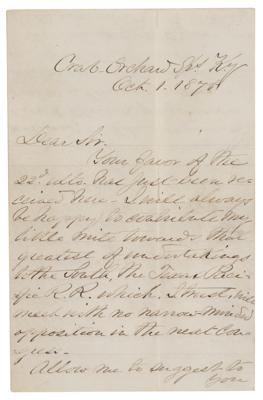 Crab Orchard Sps Ky
Oct. 1. 187
Dear Sir.
Your favor of the
22d ulto. has just been re-
ceived here. I will always
be happy to contribute my
little mite towards that
greatest of undertakings
to the South, the Texas Paci-
fic R.R. which, I trust, will
meet with no narrow minded
opposition in the next Con-
gress.
Allow me to suggest to
you